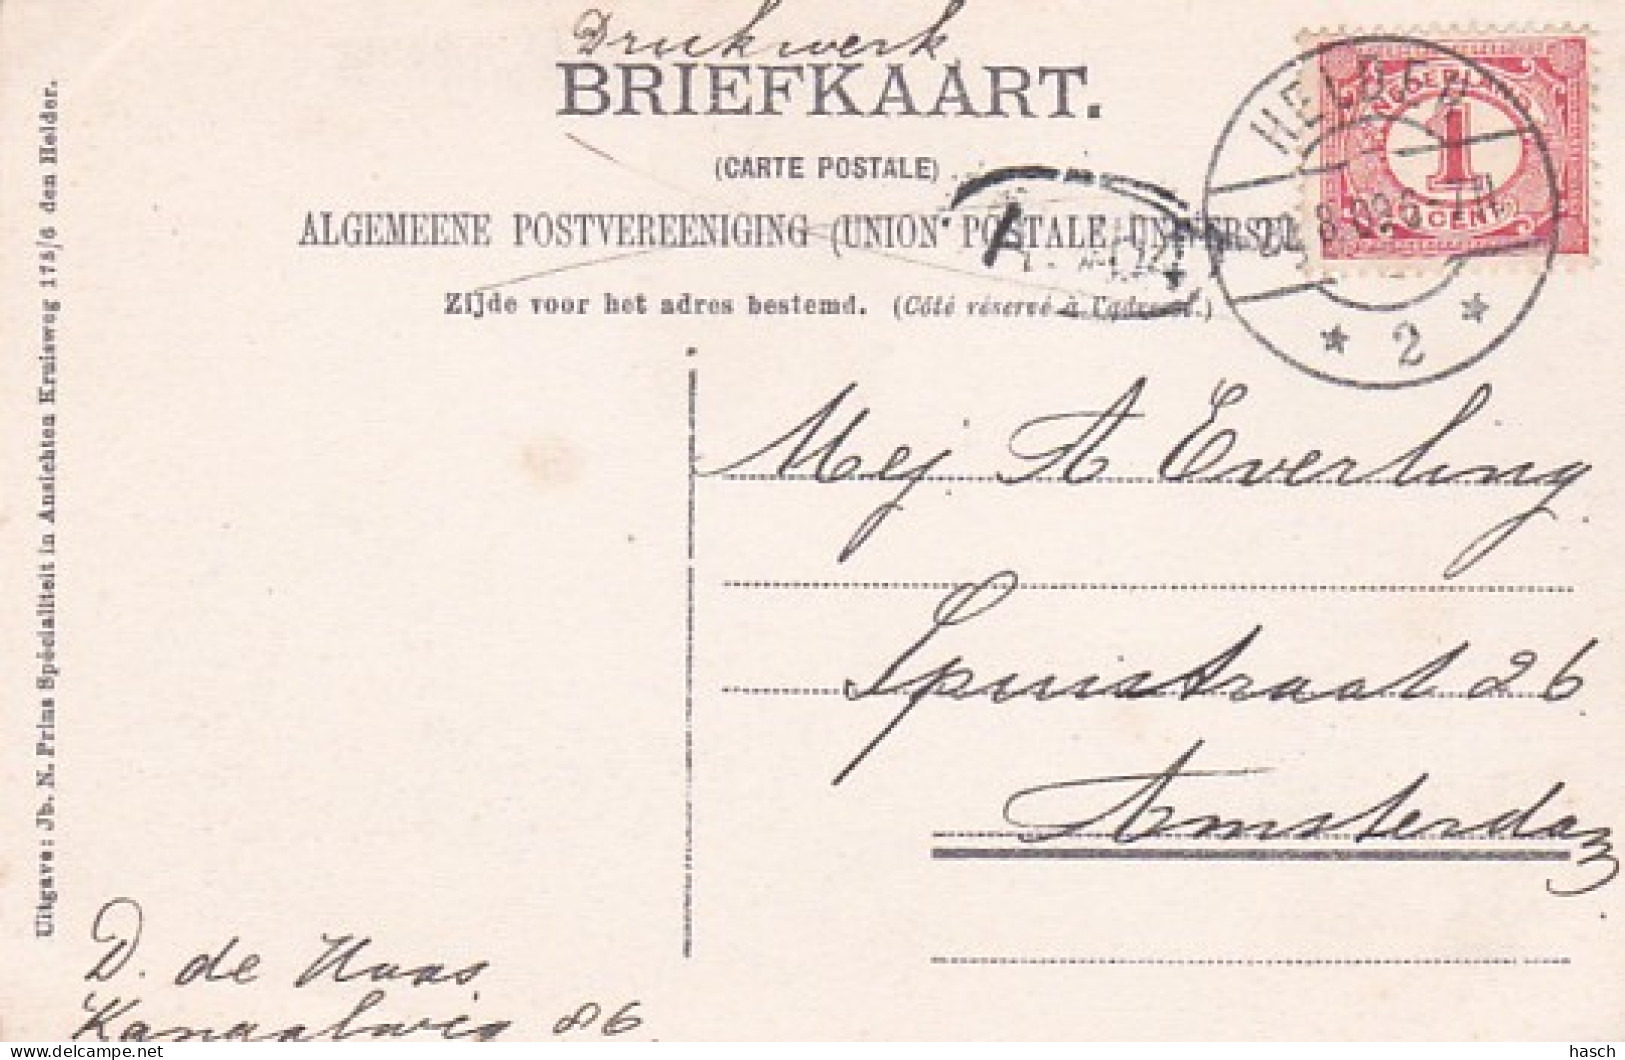 Drukwerk
BRIEFKAART.
(CARTE POSTALE)
ALGEMEENE POSTVEREENIGING (UNION POSTALE UNIVERSEL
Zijde voor het adres bestemd. (Côté réservé à l'adresse.)
NEDERLAND
1
CENT
HELDER
8.09.6-7N
2
Mej A Everling
Spuistraat 26
Amsterdam
D. de Haas
Kanaalweg 86
Uitgave: Jb. N. Prins Spécialiteit in Ansichten Kruisweg 175/6 den Helder.